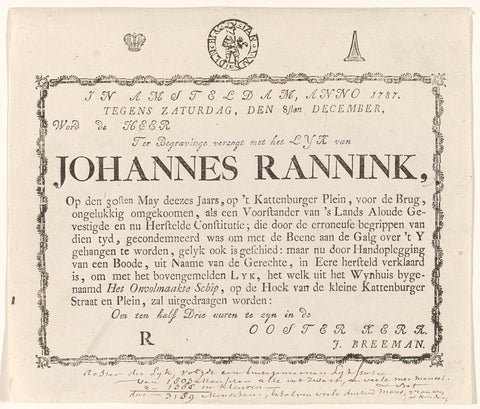 IN AMSTELDAM, ANNO 1787.
TEGENS ZATURDAG, DEN 8sten DECEMBER,
Word de HEER
Ter Begravinge verzogt met het LYK van
JOHANNES RANNINK,
Op den 30sten May deezes Jaars, op 't Kattenburger Plein, voor de Brug,
ongelukkig omgekoomen, als een Voorstander van 's Lands Aloude Ge-
vestigde en nu Herstelde Constitutie; die door de erroneuse begrippen van
dien tyd, gecondemneerd was om met de Beene aan de Galg over 't Y
gehangen te worden, gelyk ook is geschied: maar nu door Handoplegging
van een Boode, uit Naame van de Gerechte, in Eere hersteld verklaard
is, om met het bovengemelden LYK, het welk uit het Wynhuis byge-
naamd Het Onvolmaakte Schip, op de Hoek van de kleine Kattenburger
Straat en Plein, zal uitgedraagen worden:
Om ten half Drie uuren te zyn in de
OOSTER KERK.
R
J. BREEMAN.
Achter de Lyk, volgde een
Van 1803 Menschen alle int Zwart, de veele met mantel.
1386 in Kleuren
3189 Menschen, behalven veele duizend